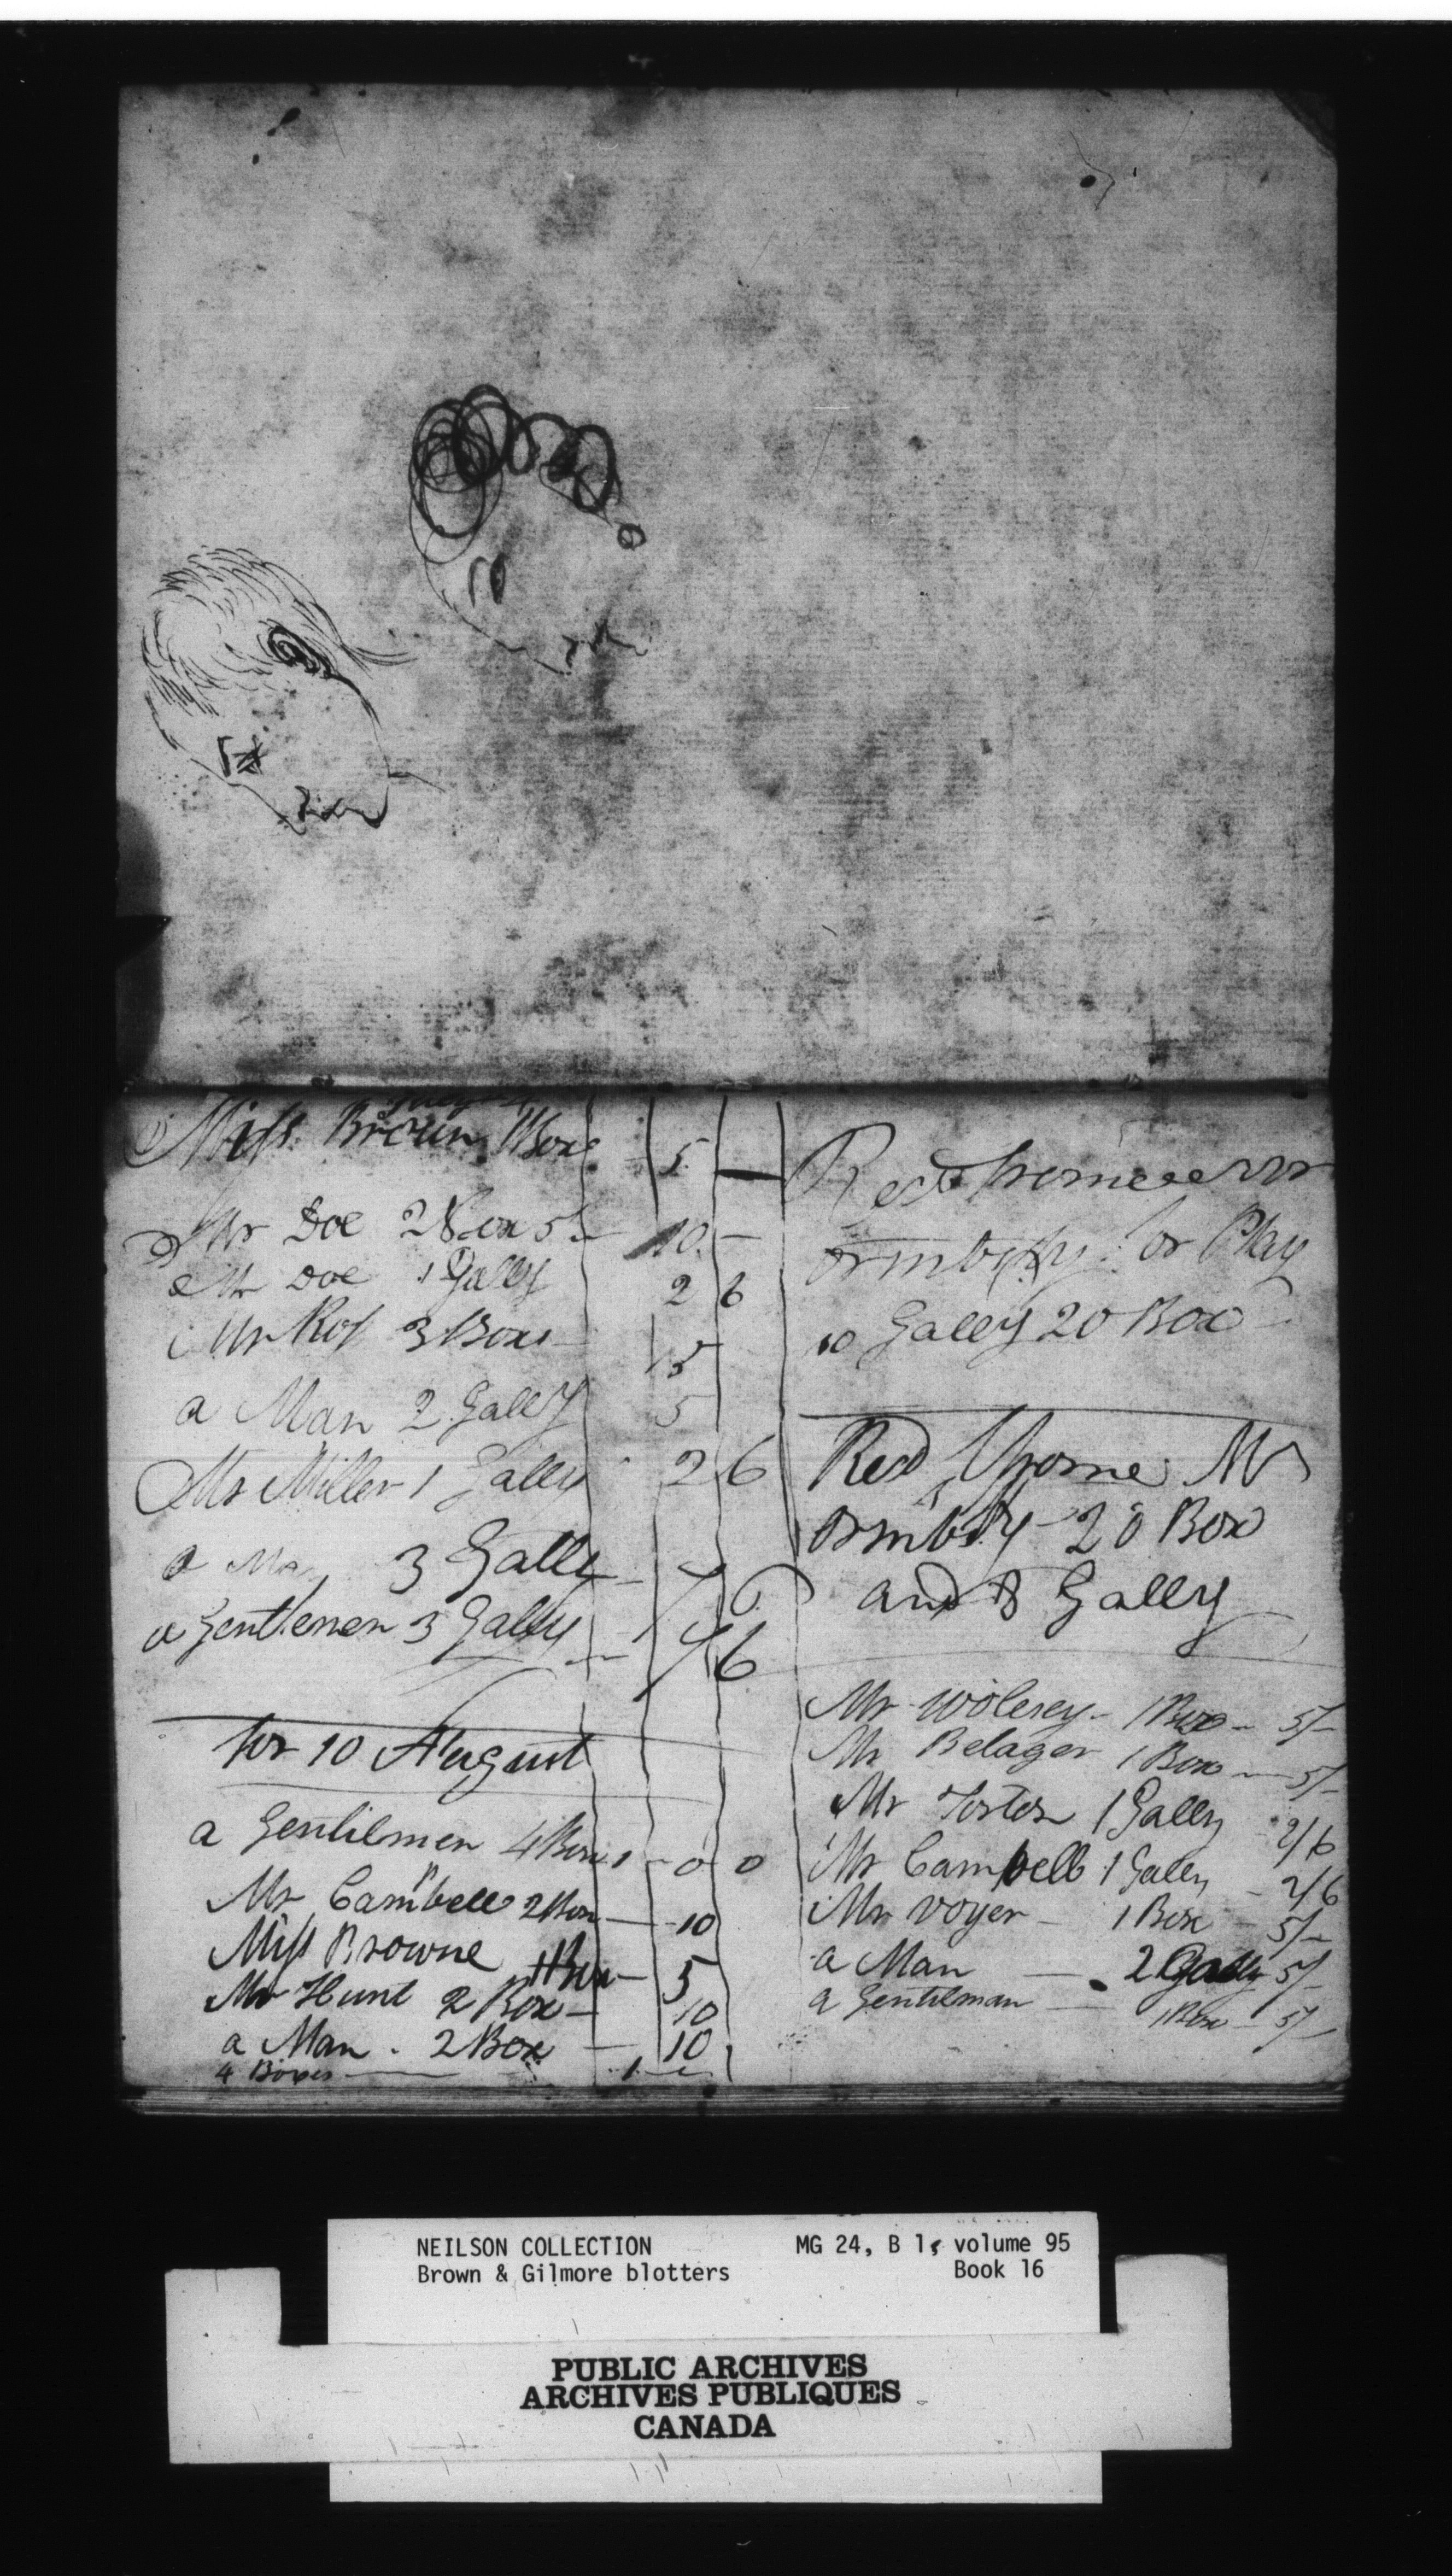 Miss Brown 1 Box 5 —
Mr Doe 2 Box 5/- 10 —
Mr Doe 1 Gally 2 6
Mr Roy 3 Boxs 15
a Man 2 Gally 5
Mr Miller 1 Gally 2 6
a Man 3 Gally 7 6
a Gentlemen 3 Gally 7 6
for 10 August
a Gentilmen 4 Box 1 - 0 - 0
Mr Campbell 2 Box — 10
Miss Browne 1 Box — 5
Mr Hunt 2 Box — 10
a Man . 2 Box — 10
4 Boxes — 1 —
Recd frome Mr
Ormbsby for Play
10 Gally 20 Box
Recd frome Mr
Ormbsby 20 Box
and 8 Gally
Mr Wolesey - 1 Box - 5/-
Mr Belager 1 Box — 5/-
Mr Foster 1 Gally 2/6
Mr Campbell 1 Gally - 2/6
Mr Voyer - 1 Box - 5/-
a Man — 2 Gally 5/-
a Gentilman — 1 Box - 5/-
NEILSON COLLECTION MG 24, B 1, volume 95
Brown & Gilmore blotters Book 16
PUBLIC ARCHIVES
ARCHIVES PUBLIQUES
CANADA